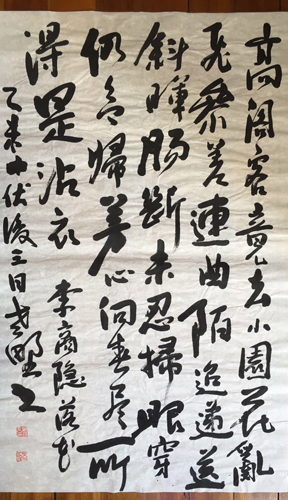 高閣客竟去小園花亂
飛參差連曲陌迢遞送
斜暉腸斷未忍掃眼穿
仍欲歸芳心向春盡所
得是沾衣 李商隐落花
乙未中伏後三日